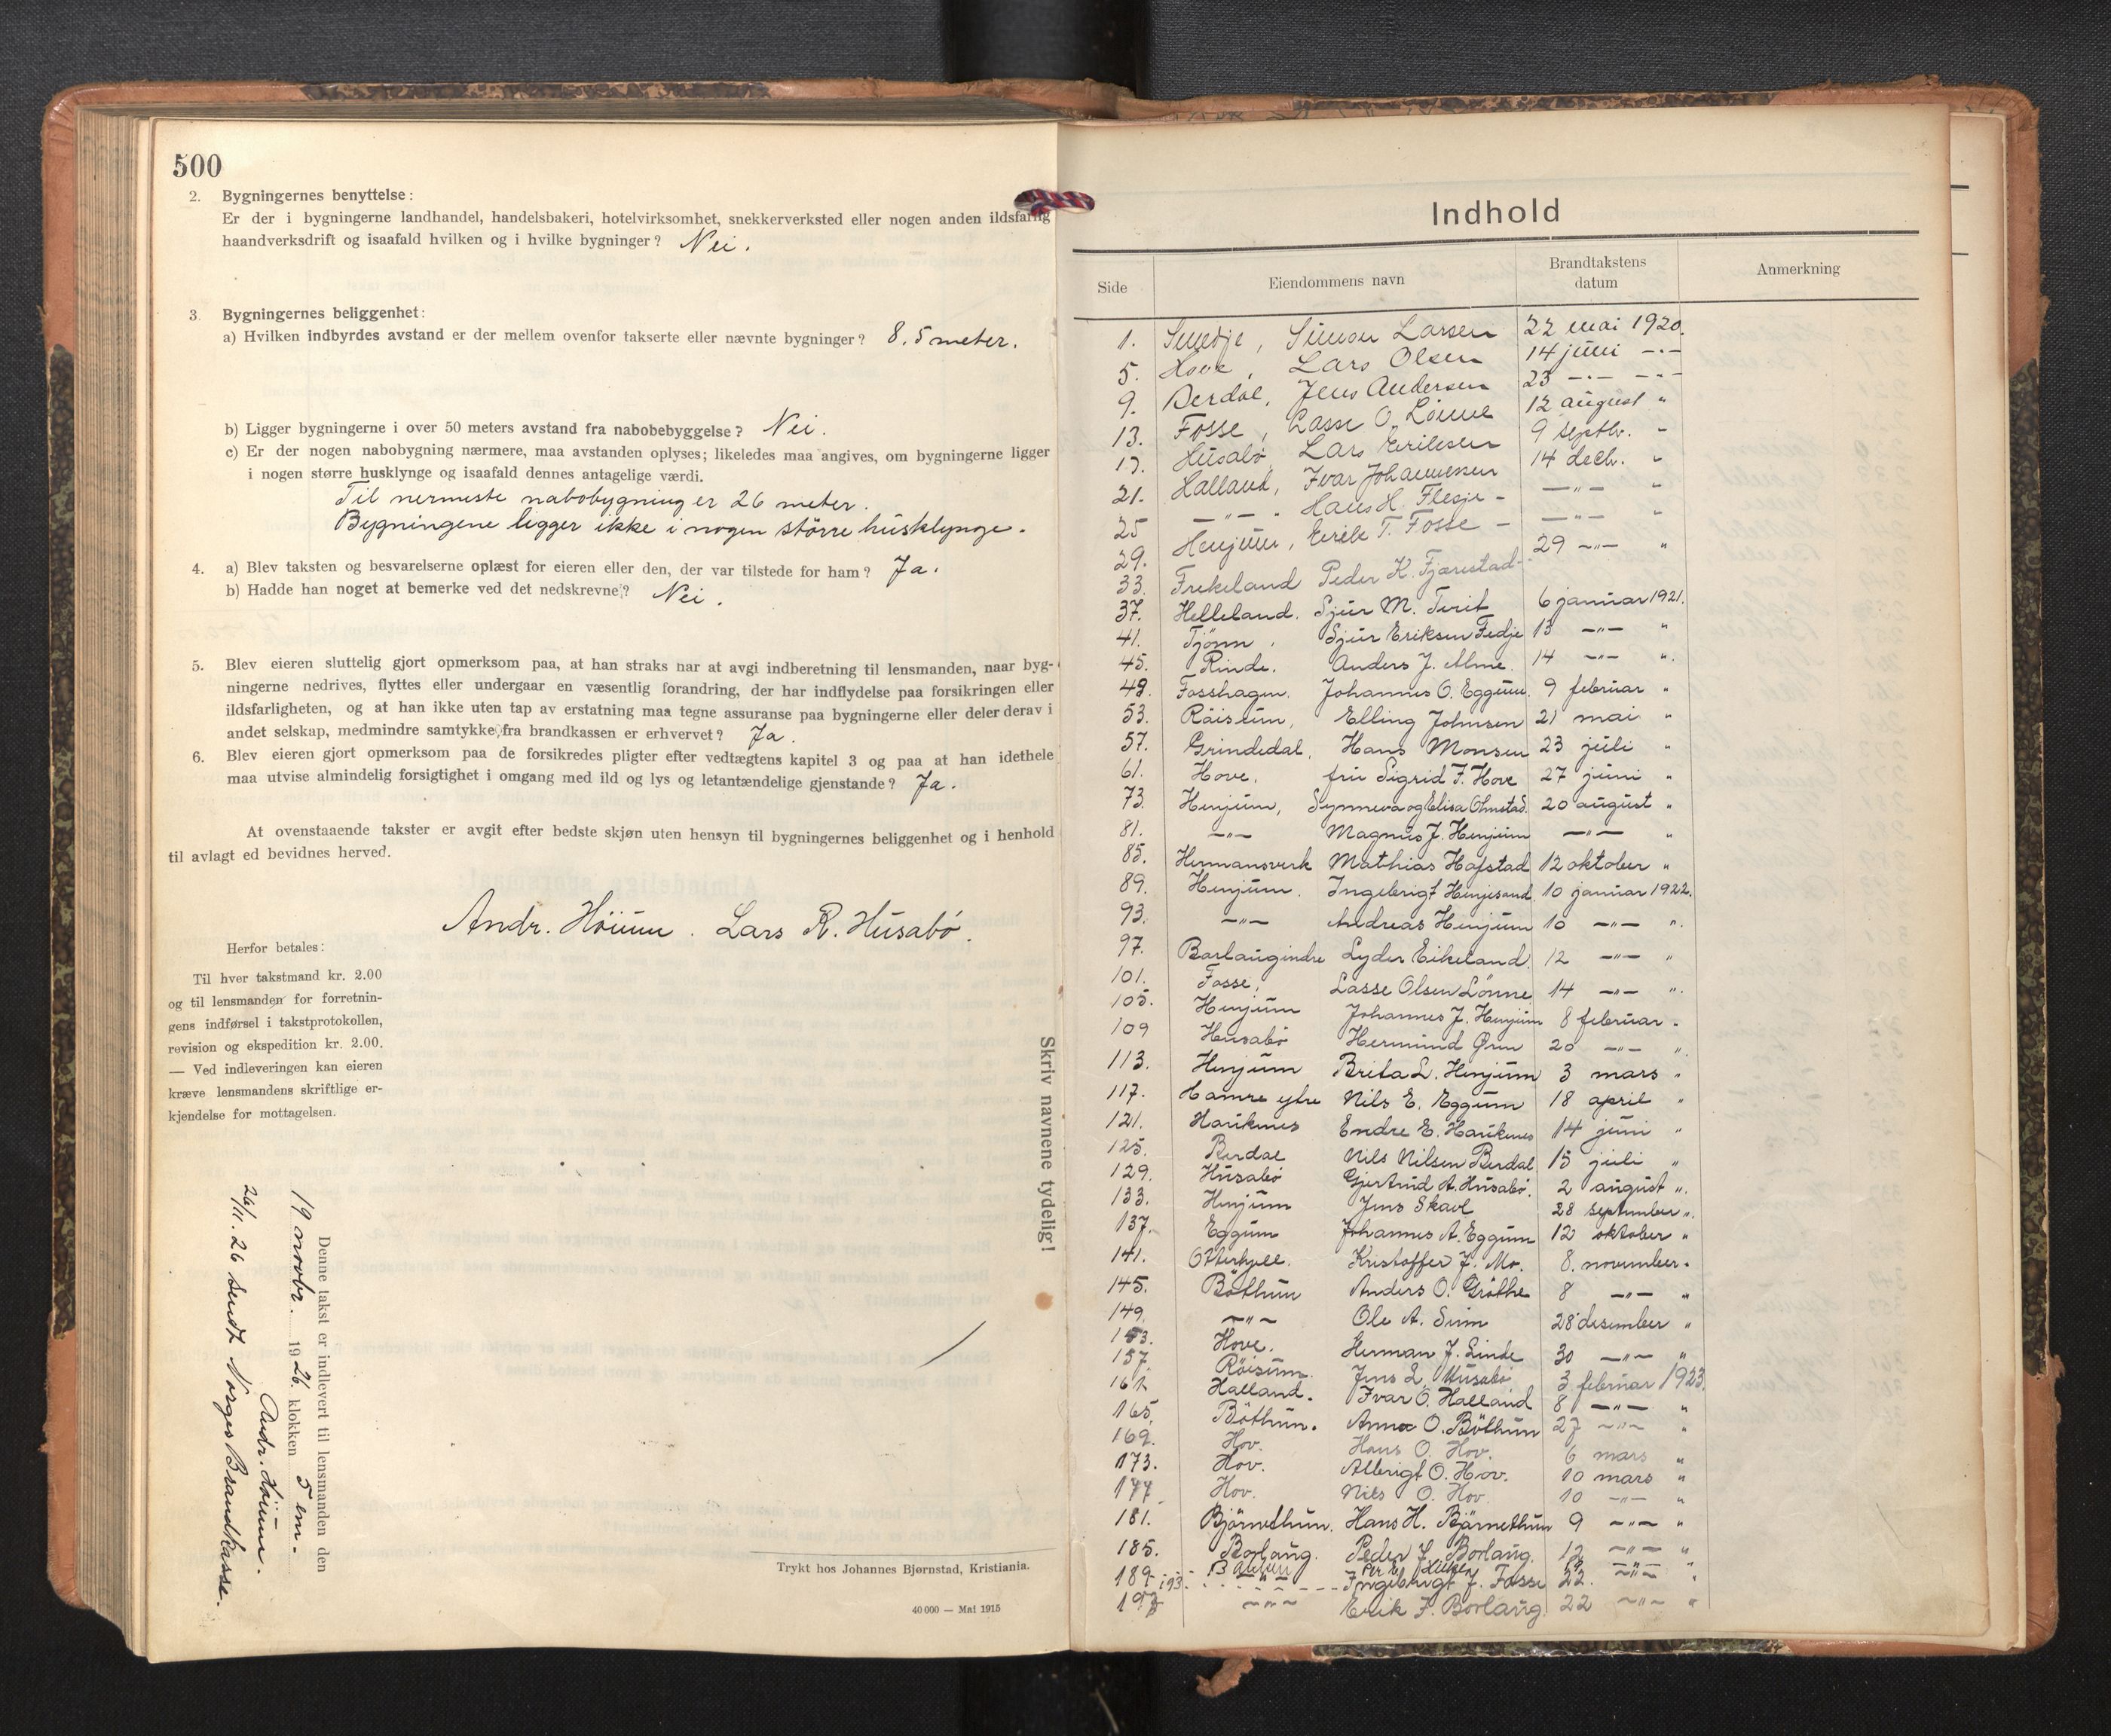 500
2. Bygningernes benyttelse:
Er der i bygningerne landhandel, handelsbakeri, hotelvirksomhet, snekkerverksted eller nogen anden ildsfarlig
haandverksdrift og isaafald hvilken og i hvilke bygninger? Nei.
3. Bygningernes beliggenhet:
a) Hvilken indbyrdes avstand er der mellem ovenfor takserte eller nævnte bygninger? 8.5 meter.
b) Ligger bygningerne i over 50 meters avstand fra nabobebyggelse? Nei.
c) Er der nogen nabobygning nærmere, maa avstanden oplyses; likeledes maa angives, om bygningerne ligger
i nogen større husklynge og isaafald dennes antagelige værdi.
Til nermeste nabobygning er 26 meter.
Bygningene ligger ikke i nogen större husklynge.
4. a) Blev taksten og besvarelserne oplæst for eieren eller den, der var tilstede for ham? Ja.
b) Hadde han noget at bemerke ved det nedskrevne? Nei.
5. Blev eieren sluttelig gjort opmerksom paa, at han straks har at avgi indberetning til lensmanden, naar byg-
ningerne nedrives, flyttes eller undergaar en væsentlig forandring, der har indflydelse paa forsikringen eller
ildsfarligheten, og at han ikke uten tap av erstatning maa tegne assuranse paa bygningerne eller deler derav i
andet selskap, medmindre samtykke fra brandkassen er erhvervet? Ja.
6. Blev eieren gjort opmerksom paa de forsikredes pligter efter vedtægtens kapitel 3 og paa at han idethele
maa utvise almindelig forsigtighet i omgang med ild og lys og letantændelige gjenstande? Ja.
At ovenstaaende takster er avgit efter bedste skjøn uten hensyn til bygningernes beliggenhet og i henhold
til avlagt ed bevidnes herved.
Andr. Höium. Lars R. Husabö.
Herfor betales:
Til hver takstmand kr. 2.00
og til lensmanden for forretnin-
gens indførsel i takstprotokollen,
revision og ekspedition kr. 2.00.
— Ved indleveringen kan eieren
kræve lensmandens skriftlige er-
kjendelse for mottagelsen.
Skriv navnene tydelig!
Denne takst er indlevert til lensmanden den
19 novbr. 1926. klokken 5 em.
Andr. Höium.
26/11. 26 sendt Norges Brandkasse.
Trykt hos Johannes Bjørnstad, Kristiania.
40 000 — Mai 1915
Indhold
Side Eiendommens navn Brandtakstens datum Anmerkning
1. Smedje, Simon Larsen 22 mai 1920.
5. Hove, Lars Olsen 14 juni -"-
9. Berdal, Jens Andersen 23 -"- -"-
13. Fosse, Lasse O. Lönne 12 august "
17. Husabö, Lars Eriksen 9 septbr. "
21. Halland, Ivar Johannesen 14 decb. "
25 -"- Hans H. Flesje - -"- "
29. Henjum, Eirik T. Fosse - -"- "
33. Frekeland Peder K. Fjærestad 29 -"- "
37. Helleland. Sjur M. Tirit 6 januar 1921.
41. Tjönn, Sjur Eriksen Fedje 13 -"- "
45. Rinde. Anders J. Alme. 14 -"- "
49. Fosshagen. Johannes O. Eggum. 9 februar "
53. Röisum, Elling Johnsen 21 mai "
57. Grindedal, Hans Monsen 23 juli "
61. Hove, fru Sigrid F. Hove 27 juni "
73. Henjum, Synneva og Elisa Ohnstad. 20 august "
81. -"- Magnus J. Henjum -"- "
85. Hermansverk Mathias Hafstad 12 oktober "
89. Henjum. Ingebrigt Henjesand. 10 januar 1922.
93. -"- Andreas Henjum 10 -"- "
97. Borlaug indre Lyder Eikeland. 12 -"- "
101. Fosse, Lasse Olsen Lönne 14 -"- "
105. Henjum Johannes J. Henjum 8 februar "
109 Husabö Hermund Ørum 20 -"- "
113. Henjum Brita L. Henjum 3 mars "
117. Hamre ytre Nils E. Eggum 18 april "
121. Hauknes Endre E. Hauknes 14 juni "
125. Berdal Nils Nilsen Berdal 15 juli "
129. Husabö Gjertrud A. Husabö. 2 august "
133. Henjum Jens Skavl 28 september "
137. Eggum Johannes A. Eggum 12 oktober "
141. Otterhjell. Kristoffer J. Mo. 8. november "
145. Böthun Anders O. Gröthe 8 -"- "
149. -"- Ole A. Sum 28 desember "
153. Hove. Herman J. Linde 30 -"- "
157. Röisum. Jens L. Husabö 3 februar 1923.
161. Halland. Ivar O. Halland 8 -"- "
165. Böthun. Anna O. Böthun 27 -"- "
169. Hov. Hans O. Hov. 6 mars "
173. Hov. Albrigt O. Hov. 10 mars "
177 Hov. Nils O. Hov. 10 -"- "
181. Björnethun. Hans H. Björnethun 9 -"- "
185. Borlaug. Peder J. Borlaug. 12 -"- "
189-193. -"- Ingebrigt J. Fosse 22. -"- "
197 -"- Erik J. Borlaug. 22 -"- "